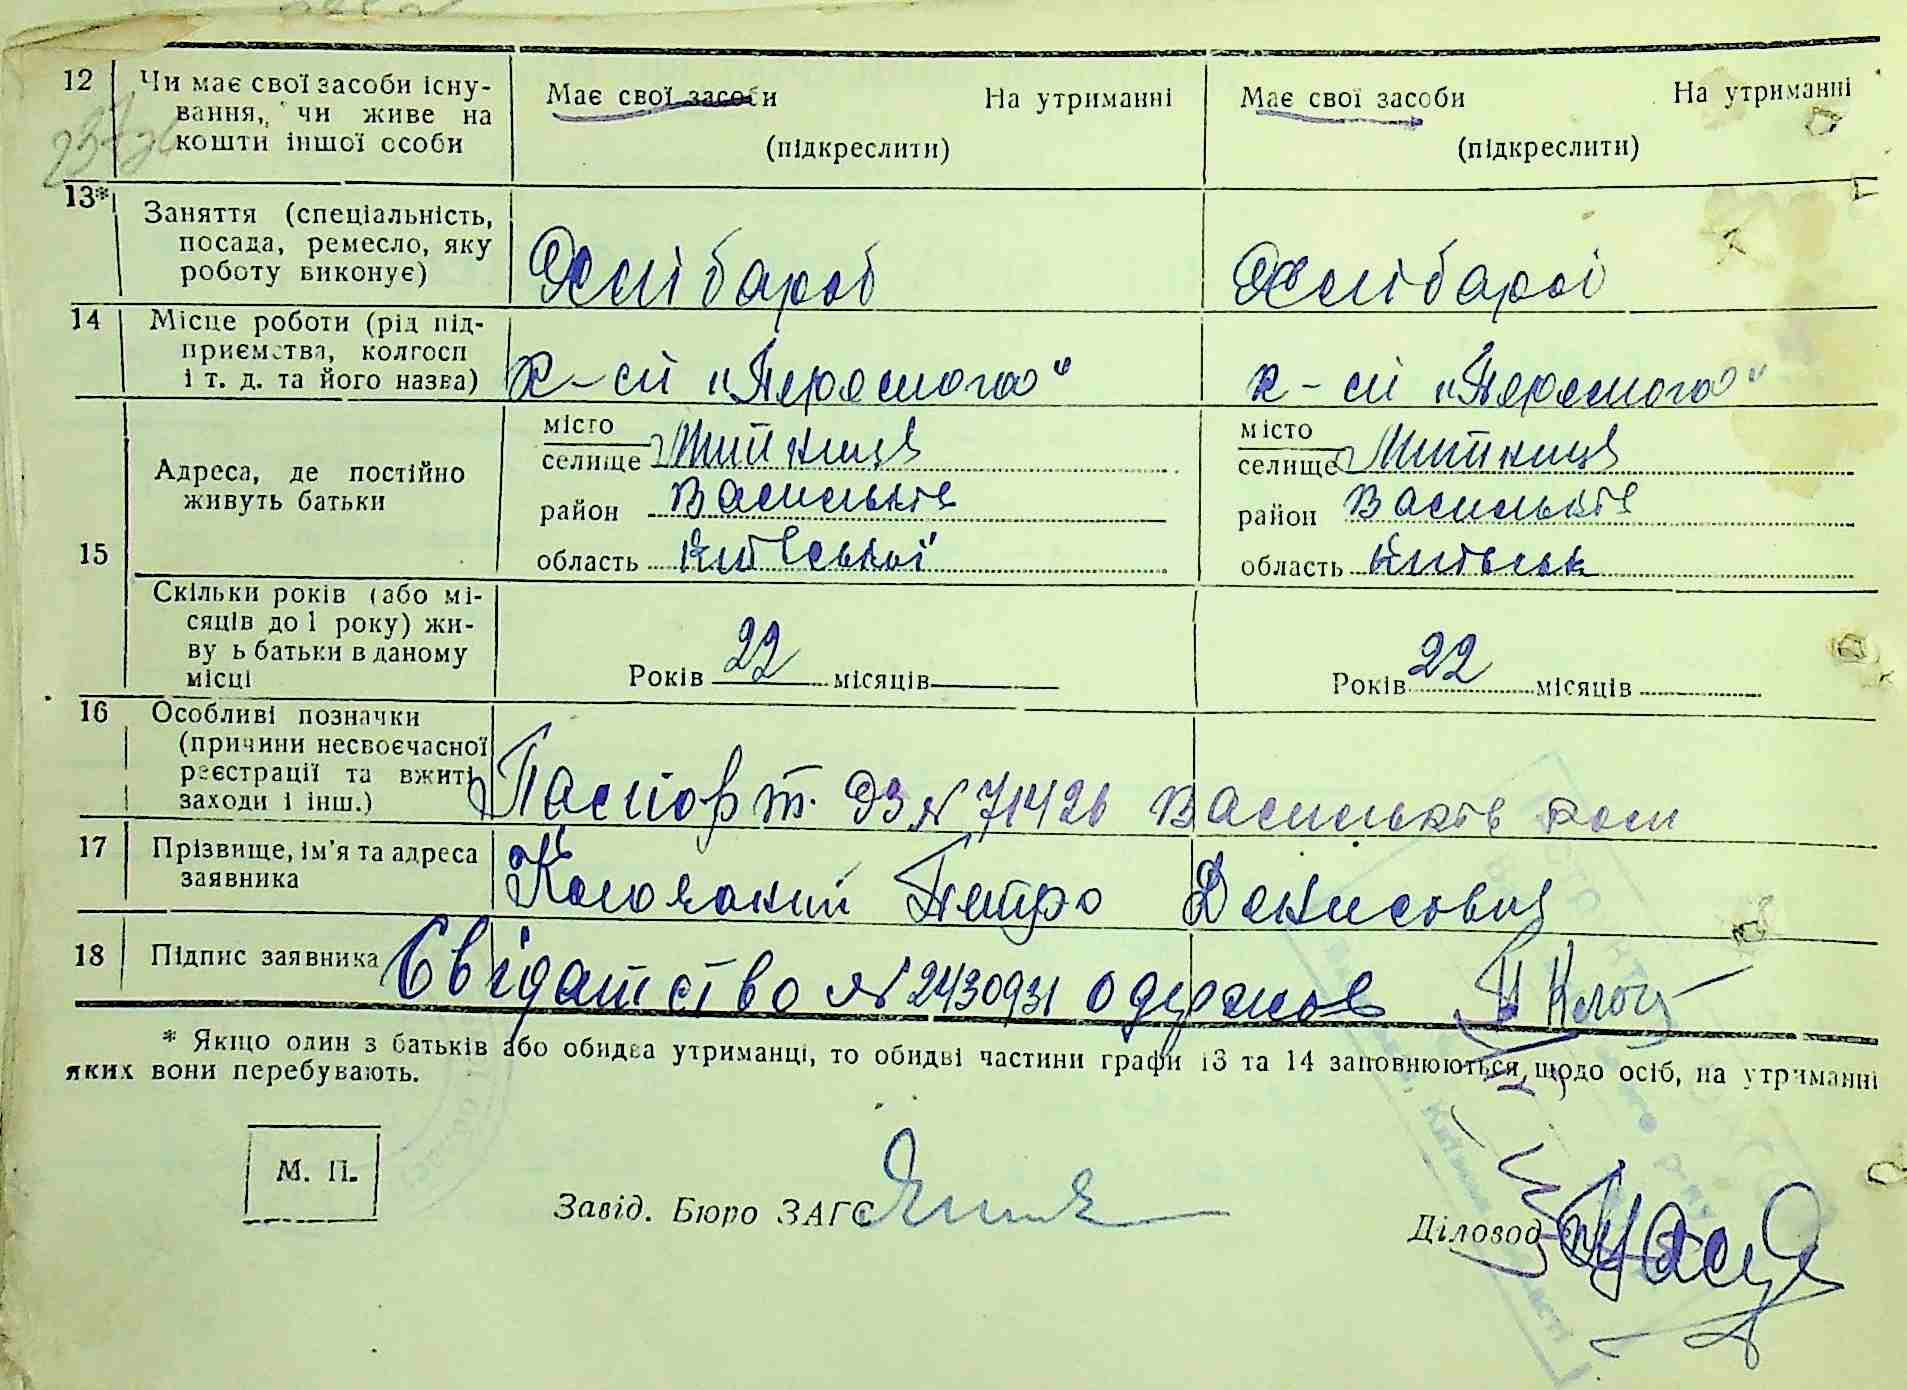 12 Чи має свої засоби існу-
вання, чи живе на
кошти іншої особи
Має свої засоби На утриманні
(підкреслити)
Має свої засоби На утриманні
(підкреслити)
13* Заняття (спеціальність,
посада, ремесло, яку
роботу виконує)
Хлібороб
Хлібороб
14 Місце роботи (рід під-
приємства, колгосп
і т. д. та його назва)
к-сп „Перемога"
к-сп „Перемога"
15 Адреса, де постійно
живуть батьки
місто
селище Митниця
район Васильків
область Київської
місто
селище Митниця
район Васильків
область Київськ
Скільки років (або мі-
сяців до 1 року) жи-
ву ь батьки в даному
місці
Років 22 місяців
Років 22 місяців
16 Особливі позначки
(причини несвоєчасної
реєстрації та вжиті
заходи і інш.)
Паспорт ДЗ № 71426 Васильків
17 Прізвище, ім'я та адреса
заявника
Петро Денисович
18 Підпис заявника
Свідатство № 2430931 одержав
* Якщо один з батьків або обидва утриманці, то обидві частини графи 13 та 14 заповнюються щодо осіб, на утриманні
яких вони перебувають.
М. П.
Завід. Бюро ЗАГС
Діловод